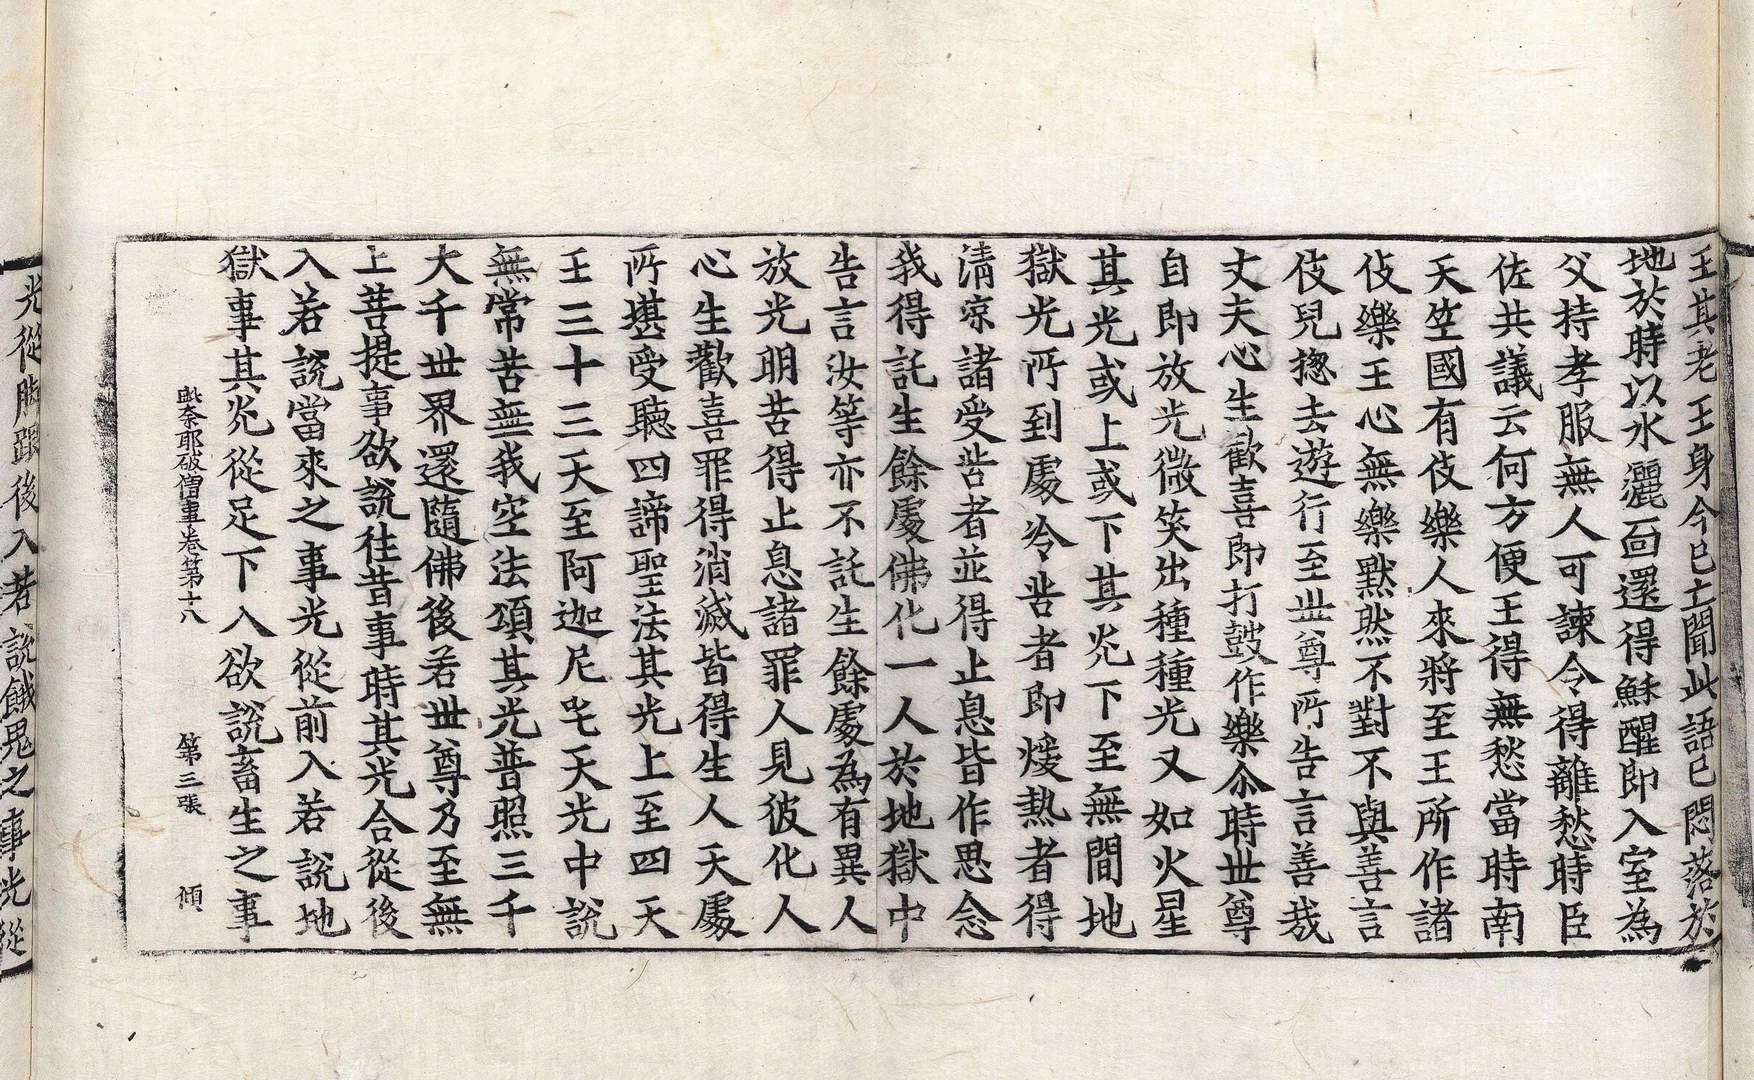 王其老王身今已亡聞此語已悶落於
地於時以水灑面還得穌醒即入室為
父持孝服無人可諫令得離愁時臣
佐共議云何方便王得無愁當時南
天竺國有伎樂人來將至王所作諸
伎樂王心無樂黙然不對不與善言
伎兒揔去遊行至丗尊所告言善哉
丈夫心生歡喜即打鼓作樂尒時丗尊
自即放光微笑出種種光又如火星
其光或上或下其炗下至無間地
獄光所到處冷苦者即煖熱者得
清涼諸受苦者並得止息皆作思念
我得託生餘處佛化一人於地獄中
告言汝等亦不託生餘處為有異人
放光明苦得止息諸罪人見彼化人
心生歡喜罪得消滅皆得生人天處
所堪受聽四諦聖法其光上至四天
王三十三天至阿迦尼吒天光中說
無常苦無我空法頌其光普照三千
大千丗界還隨佛後若丗尊乃至無
上菩提事欲說往昔事時其光合從後
入若說當來之事光從前入若說地
獄事其炗從足下入欲說畜生之事
毗奈耶破僧事卷第十八　第三張　傾
光從脚跟後入若說餓鬼之事光從